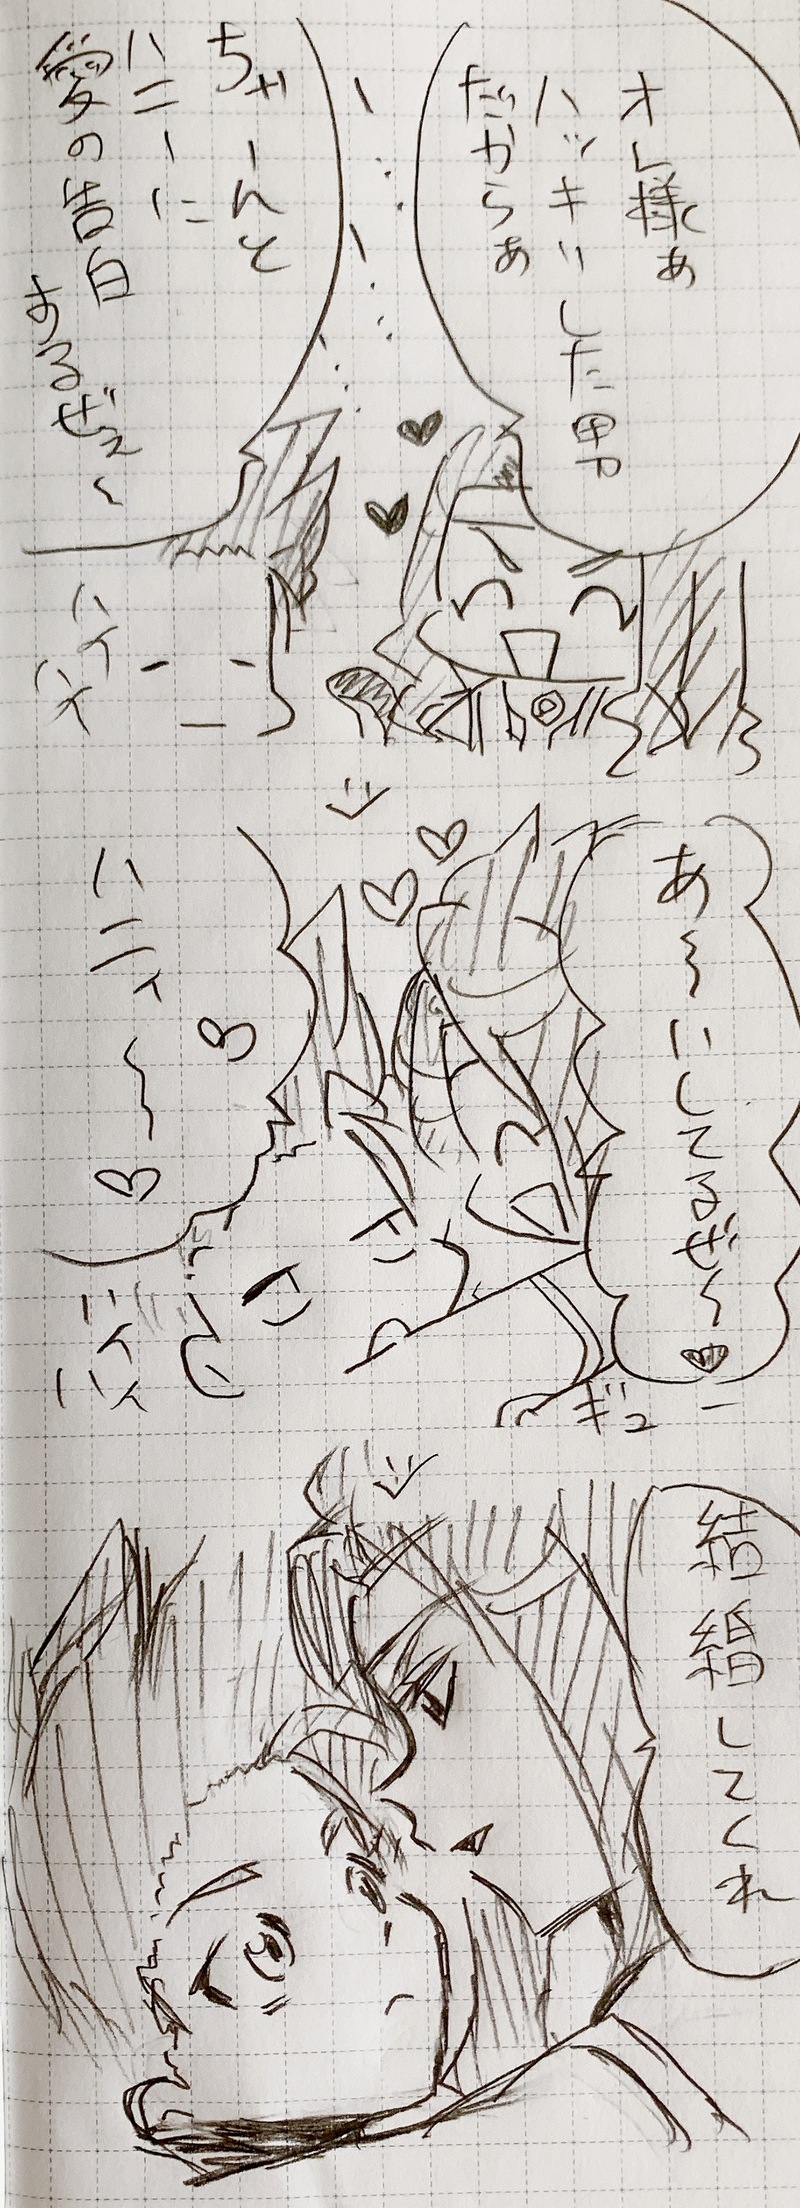 オレ様ぁ
ハッキリした男
だからぁ
ちゃーんと
ハニーに
愛の告白
するぜぇ〜
ハイ
ハイ
あ〜いしてるぜ〜♥
ハニィ〜♡♡
ハイ
ハイ
ギュー
結婚してくれ